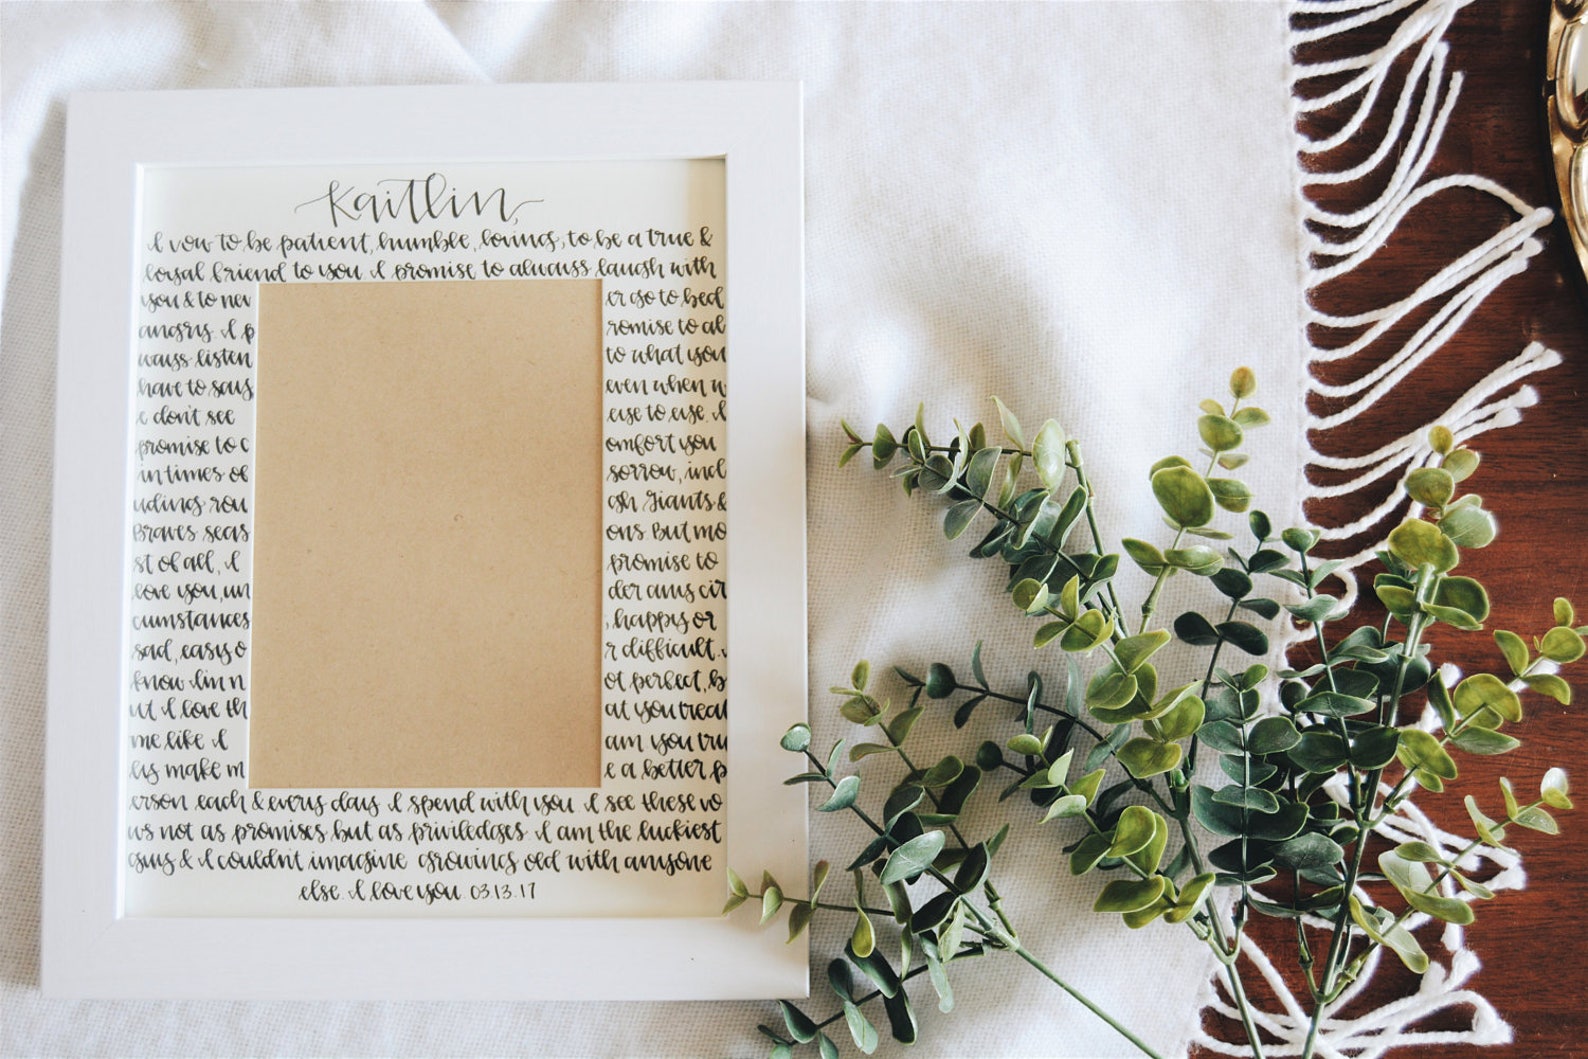 Kaitlin,
I vow to be patient, humble, loving, to be a true &
loyal friend to you I promise to always laugh with
you & to nev er go to bed
angry. I p romise to al
ways listen to what you
have to say even when w
e don't see eye to eye. I
promise to c omfort you
in times of sorrow, incl
uding rou gh Giants &
Braves seas ons. But mo
st of all, I promise to
love you, un der any cir
cumstances , happy or
sad, easy o r difficult. I
know I'm n ot perfect, b
ut I love th at you treat
me like I am. You tru
ly make m e a better p
erson each & every day I spend with you I see these vo
ws not as promises but as priviledges I am the luckiest
guy & I couldn't imagine growing old with anyone
else. I love you. 03.13.17